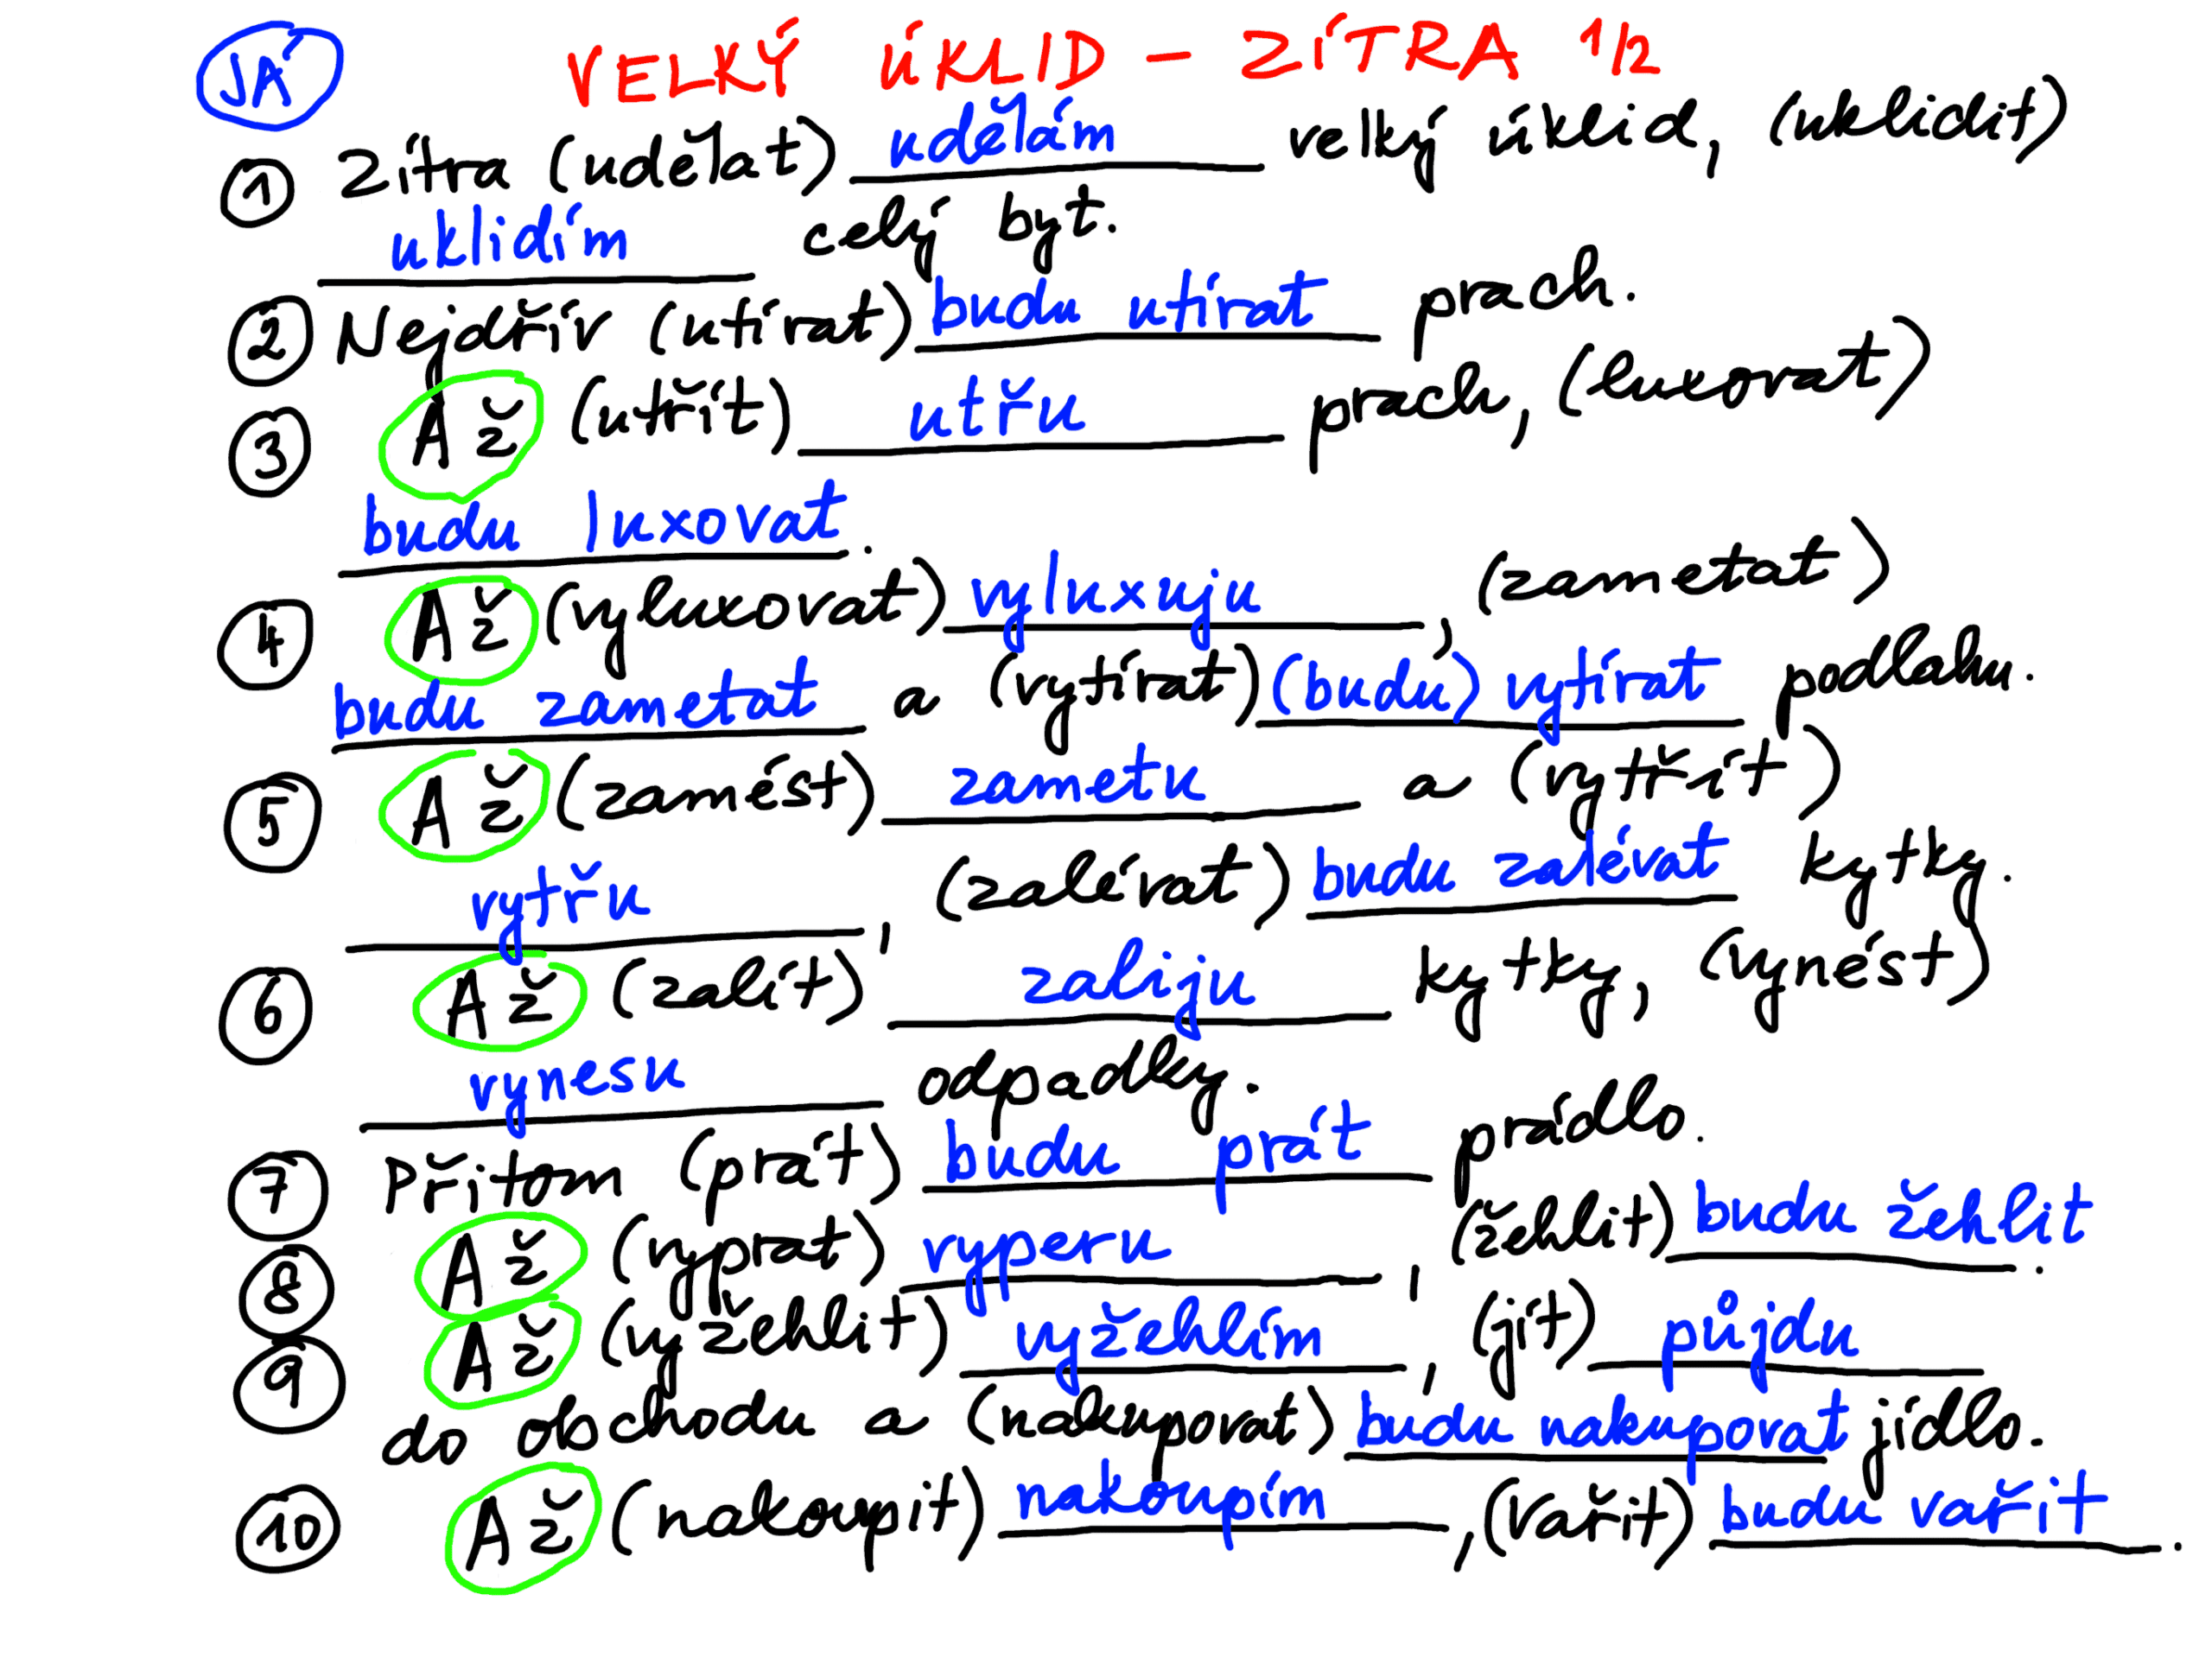 JÁ VELKÝ ÚKLID - ZÍTRA 1/2
① Zítra (udělat) udělám velký úklid, (uklidit)
uklidím celý byt.
② Nejdřív (utírat) budu utírat prach.
③ Až (utřít) utřu prach, (luxovat)
budu luxovat.
④ Až (vyluxovat) vyluxuju, (zametat)
budu zametat a (vytírat) (budu) vytírat podlahu.
⑤ Až (zamést) zametu a (vytřít)
vytřu, (zalévat) budu zalévat kytky.
⑥ Až (zalít) zaliju kytky, (vynést)
vynesu odpadky.
⑦ Přitom (prát) budu prát prádlo.
⑧ Až (vyprat) vyperu, (žehlit) budu žehlit.
⑨ Až (vyžehlit) vyžehlím, (jít) půjdu
do obchodu a (nakupovat) budu nakupovat jídlo.
⑩ Až (nakoupit) nakoupím, (vařit) budu vařit.